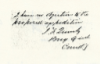 I have no objection to the
proposed expedition
Brig Genl
Comdg